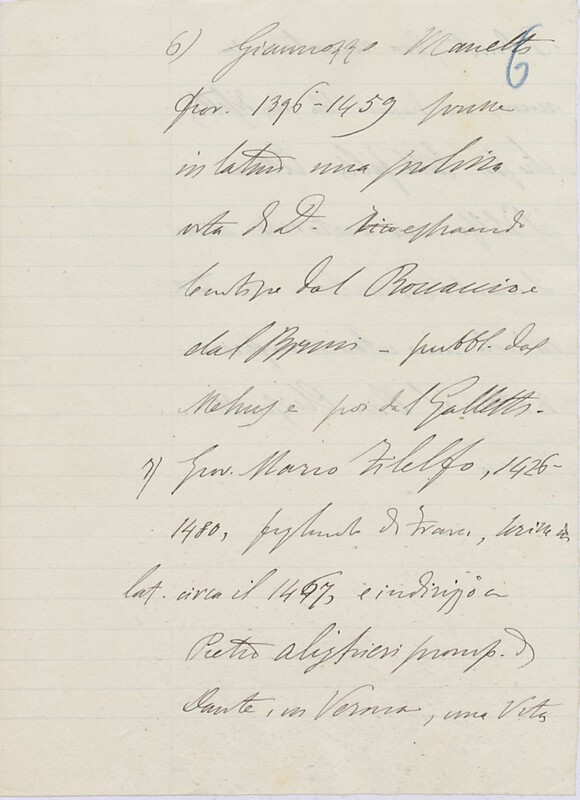 6) Giannozzo Manetti 6
fior. 1396-1459 scrisse
in latino una prolissa
vita di D.
dal Boccaccio e
dal Bruni - pubbl. dal
Mehus e poi dal Galletti.
7) Giov. Mario Filelfo, 1426-
1480, figliuolo di Franc., scrisse in
lat. circa il 1467, e indirizzò a
Pietro Alighieri pronip. di
Dante, in Verona, una Vita